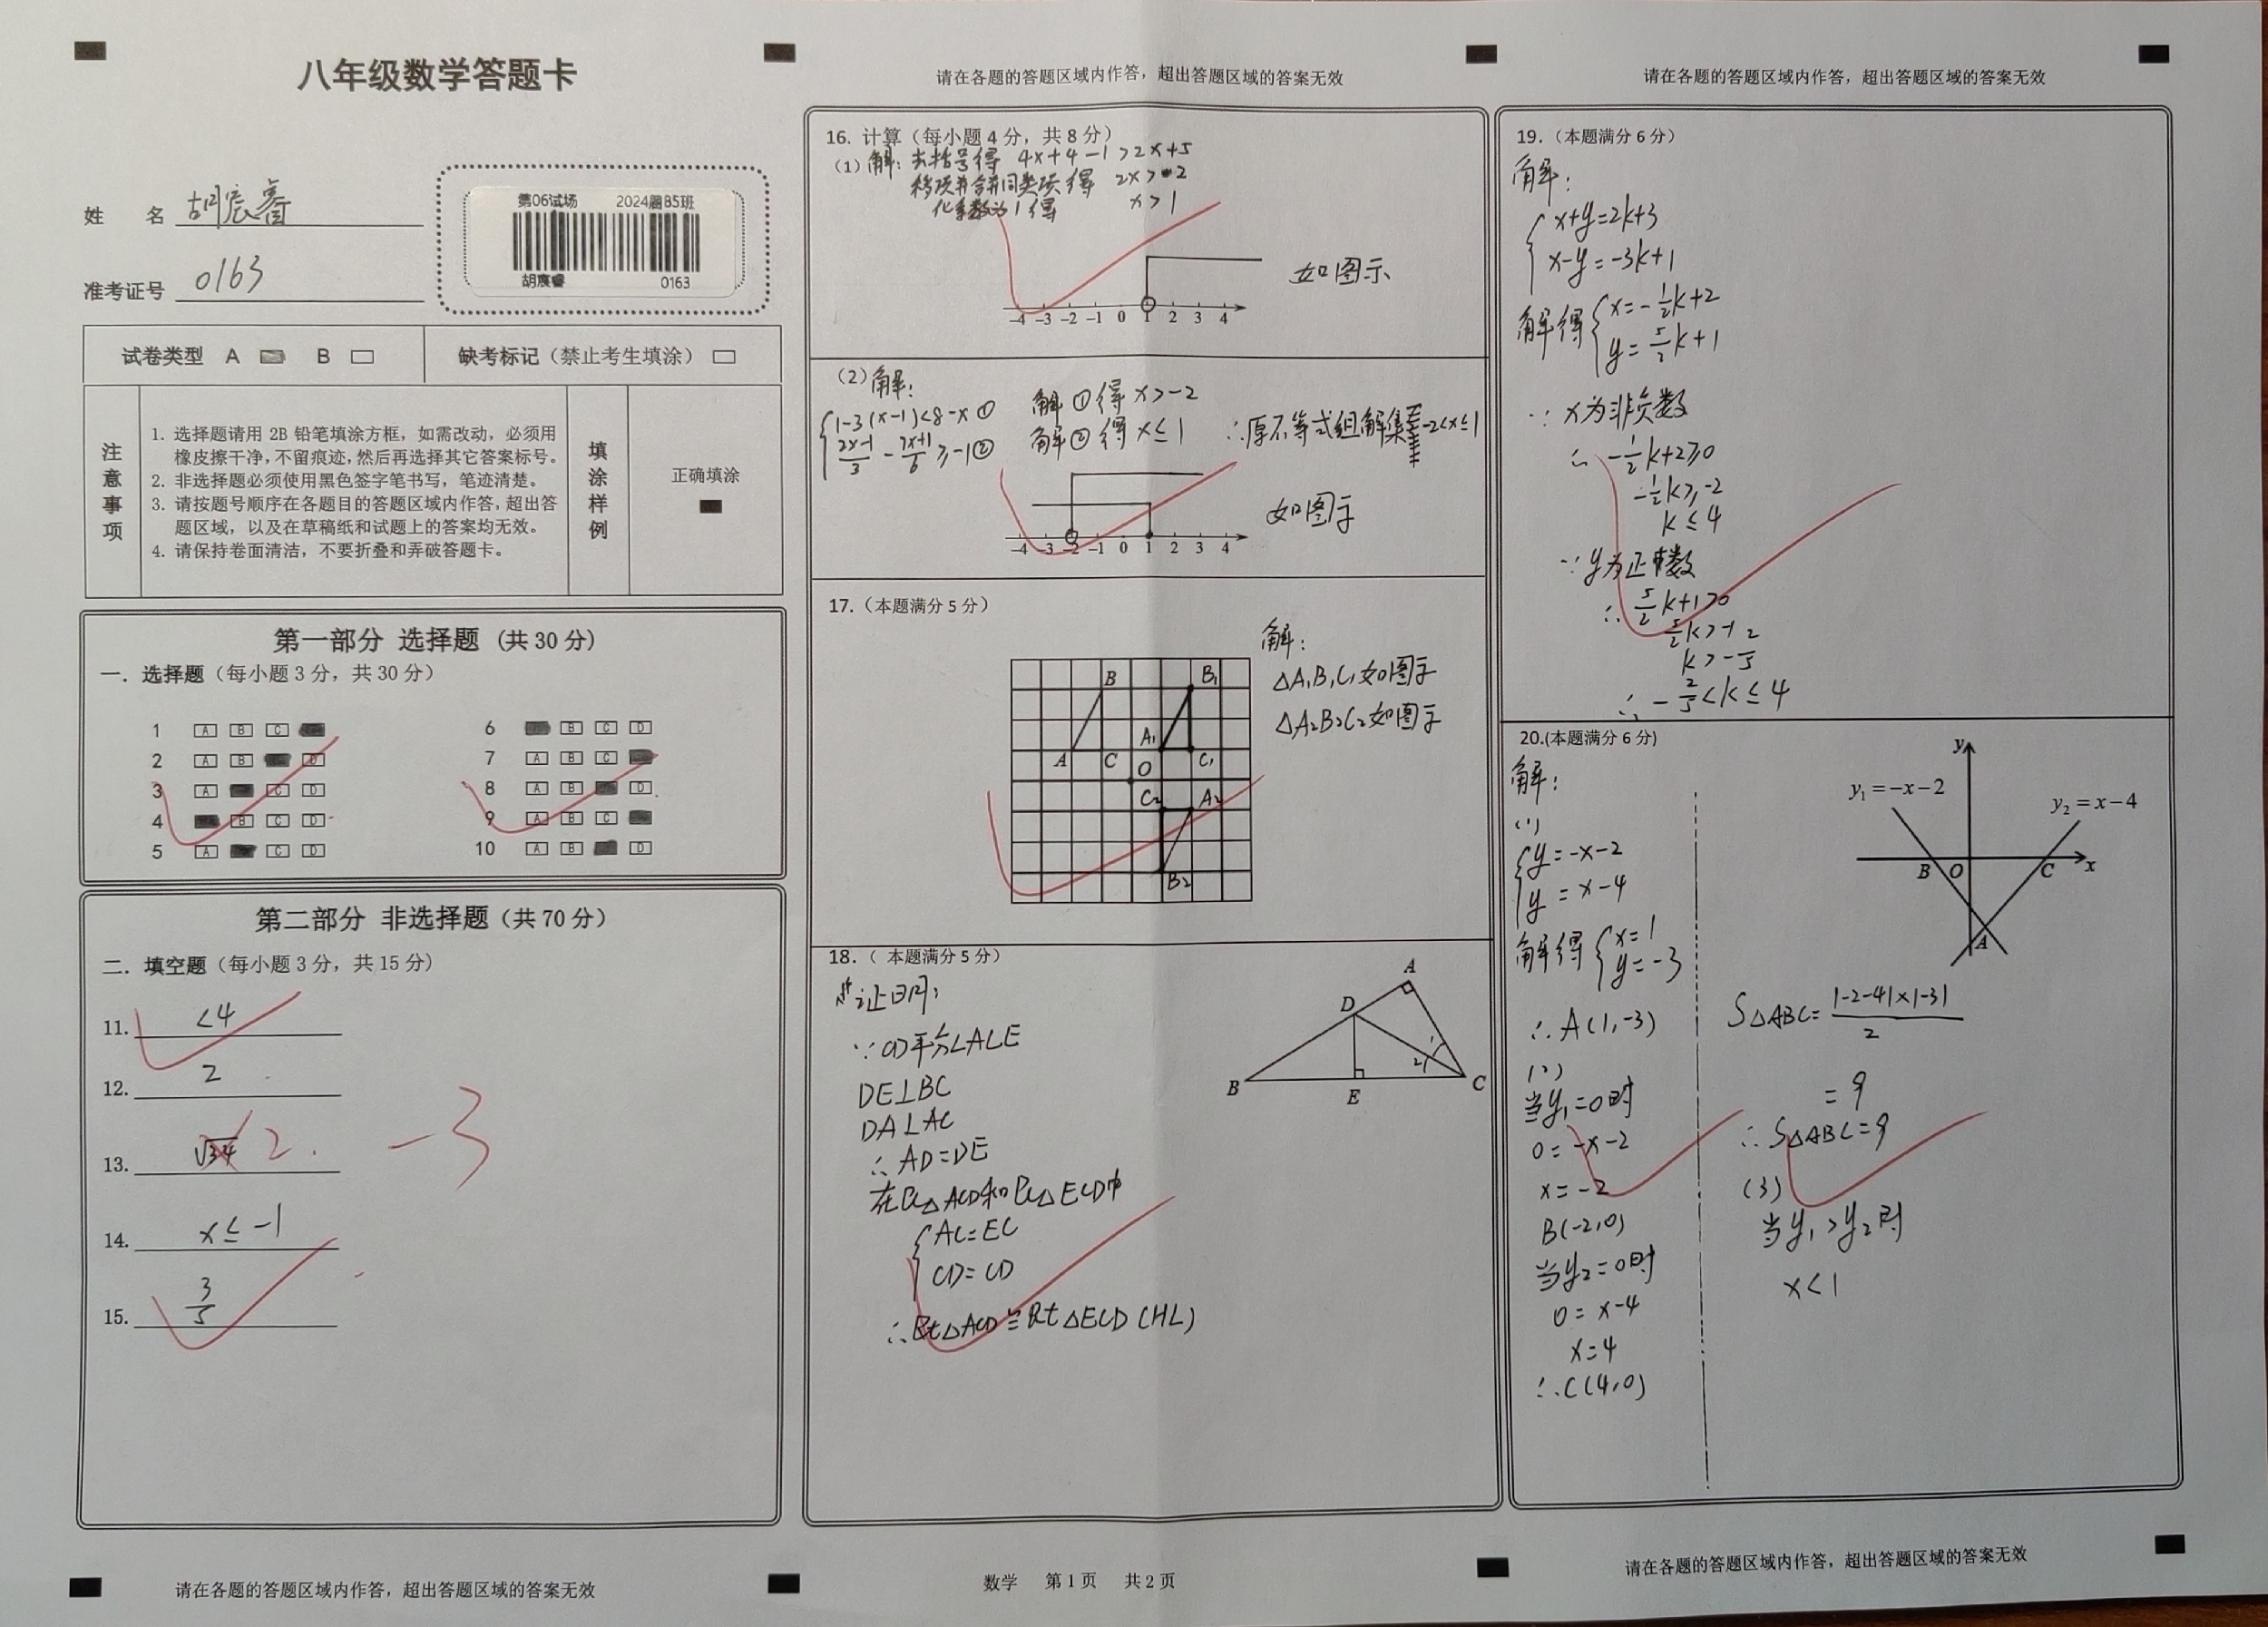 八年级数学答题卡
姓 名 胡宸睿
准考证号 0163
第06试场 2024届B5班
胡宸睿 0163
试卷类型 A B 缺考标记（禁止考生填涂）
注意事项
1. 选择题请用 2B 铅笔填涂方框，如需改动，必须用
橡皮擦干净，不留痕迹，然后再选择其它答案标号。
2. 非选择题必须使用黑色签字笔书写，笔迹清楚。
3. 请按题号顺序在各题目的答题区域内作答，超出答
题区域，以及在草稿纸和试题上的答案均无效。
4. 请保持卷面清洁，不要折叠和弄破答题卡。
填涂样例
正确填涂
第一部分 选择题（共 30 分）
一．选择题（每小题 3 分，共 30 分）
1 A B C
2 A B D
3 A C D
4 B C D
5 A C D
6 B C D
7 A B C
8 A B D
9 A B C
10 A B D
第二部分 非选择题（共 70 分）
二．填空题（每小题 3 分，共 15 分）
11. <4
12. 2
13. √34 2. -3
14. x≤-1
15. 3/5
请在各题的答题区域内作答，超出答题区域的答案无效
请在各题的答题区域内作答，超出答题区域的答案无效
16. 计算（每小题 4 分，共 8 分）
（1）解：去括号得 4x+4-1>2x+5
移项并合并同类项得 2x>2
化系数为1得 x>1
如图示
-4 -3 -2 -1 0 1 2 3 4
（2）解：
1-3(x-1)<8-x ①
(2x-1)/3 - (7x+1)/6 ≥-1②
解①得 x>-2
解②得 x≤1
∴原不等式组解集 -2<x≤1
如图示
-4 -3 -2 -1 0 1 2 3 4
17.（本题满分 5 分）
解：
△A₁B₁C₁如图示
△A₂B₂C₂如图示
B B₁
A C A₁ C₁
O
C₂ A₂
B₂
18.（ 本题满分 5 分）
证明：
∵CD平分∠ACE
DE⊥BC
DA⊥AC
∴AD=DE
在Rt△ACD和Rt△ECD中
AC=EC
CD=CD
∴Rt△ACD≌Rt△ECD (HL)
A
D
1
2
B E C
数学 第 1 页 共 2 页
请在各题的答题区域内作答，超出答题区域的答案无效
19.（本题满分 6 分）
解：
x+y=2k+3
x-y=-3k+1
解得
x=-1/2k+2
y=5/2k+1
∵x为非负数
∴-1/2k+2≥0
-1/2k≥-2
k≤4
∵y为正数
∴5/2k+1>0
5/2k>-1
k>-2/5
∴-2/5<k≤4
20.(本题满分 6 分)
解：
(1)
y=-x-2
y=x-4
解得
x=1
y=-3
∴A(1,-3)
(2)
当y₁=0时
0=-x-2
x=-2
B(-2,0)
当y₂=0时
0=x-4
x=4
∴C(4,0)
y
y₁=-x-2
y₂=x-4
B O C x
A
S△ABC=|-2-4|×|-3|/2
=9
∴S△ABC=9
(3)
当y₁>y₂时
x<1
请在各题的答题区域内作答，超出答题区域的答案无效